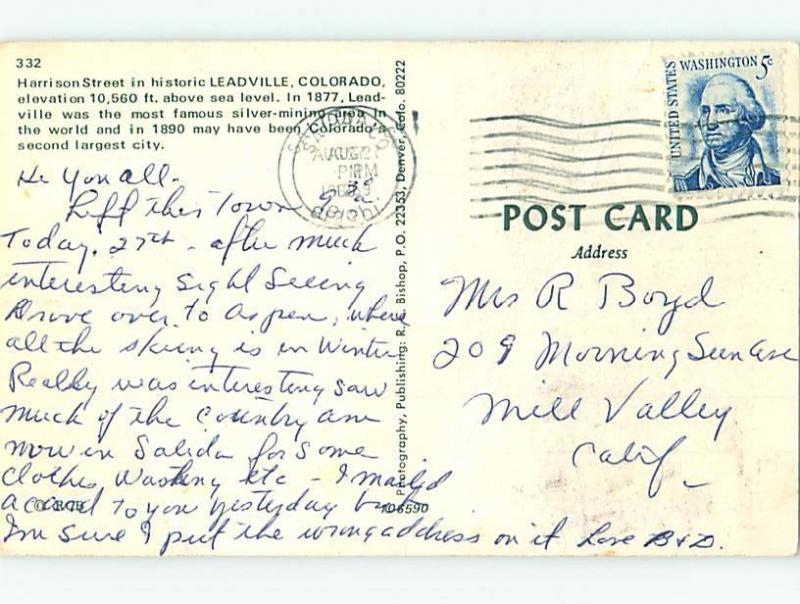 332
Harrison Street in historic LEADVILLE, COLORADO,
elevation 10,560 ft. above sea level. In 1877, Lead-
ville was the most famous silver-mining area in
the world and in 1890 may have been Colorado's
second largest city.
Hi You all.
Left this Town
Today, 27th - after much
interesting Sight Seeing
Drove over to Aspen, where
all the skiing is in Winter
Really was interesting saw
much of the Country am
now in Salida for some
clothes Washing etc - I mailed
a card to you yesterday but
I'm sure I put the wrong address on it Love B & D.
© RCB
106590
Photography, Publishing: R. Bishop, P.O. 22353, Denver, Colo. 80222
AUG 27
PM
UNITED STATES
WASHINGTON 5c
POST CARD
Address
Mrs R Boyd
209 Morning Sun Ave
Mill Valley
Calif